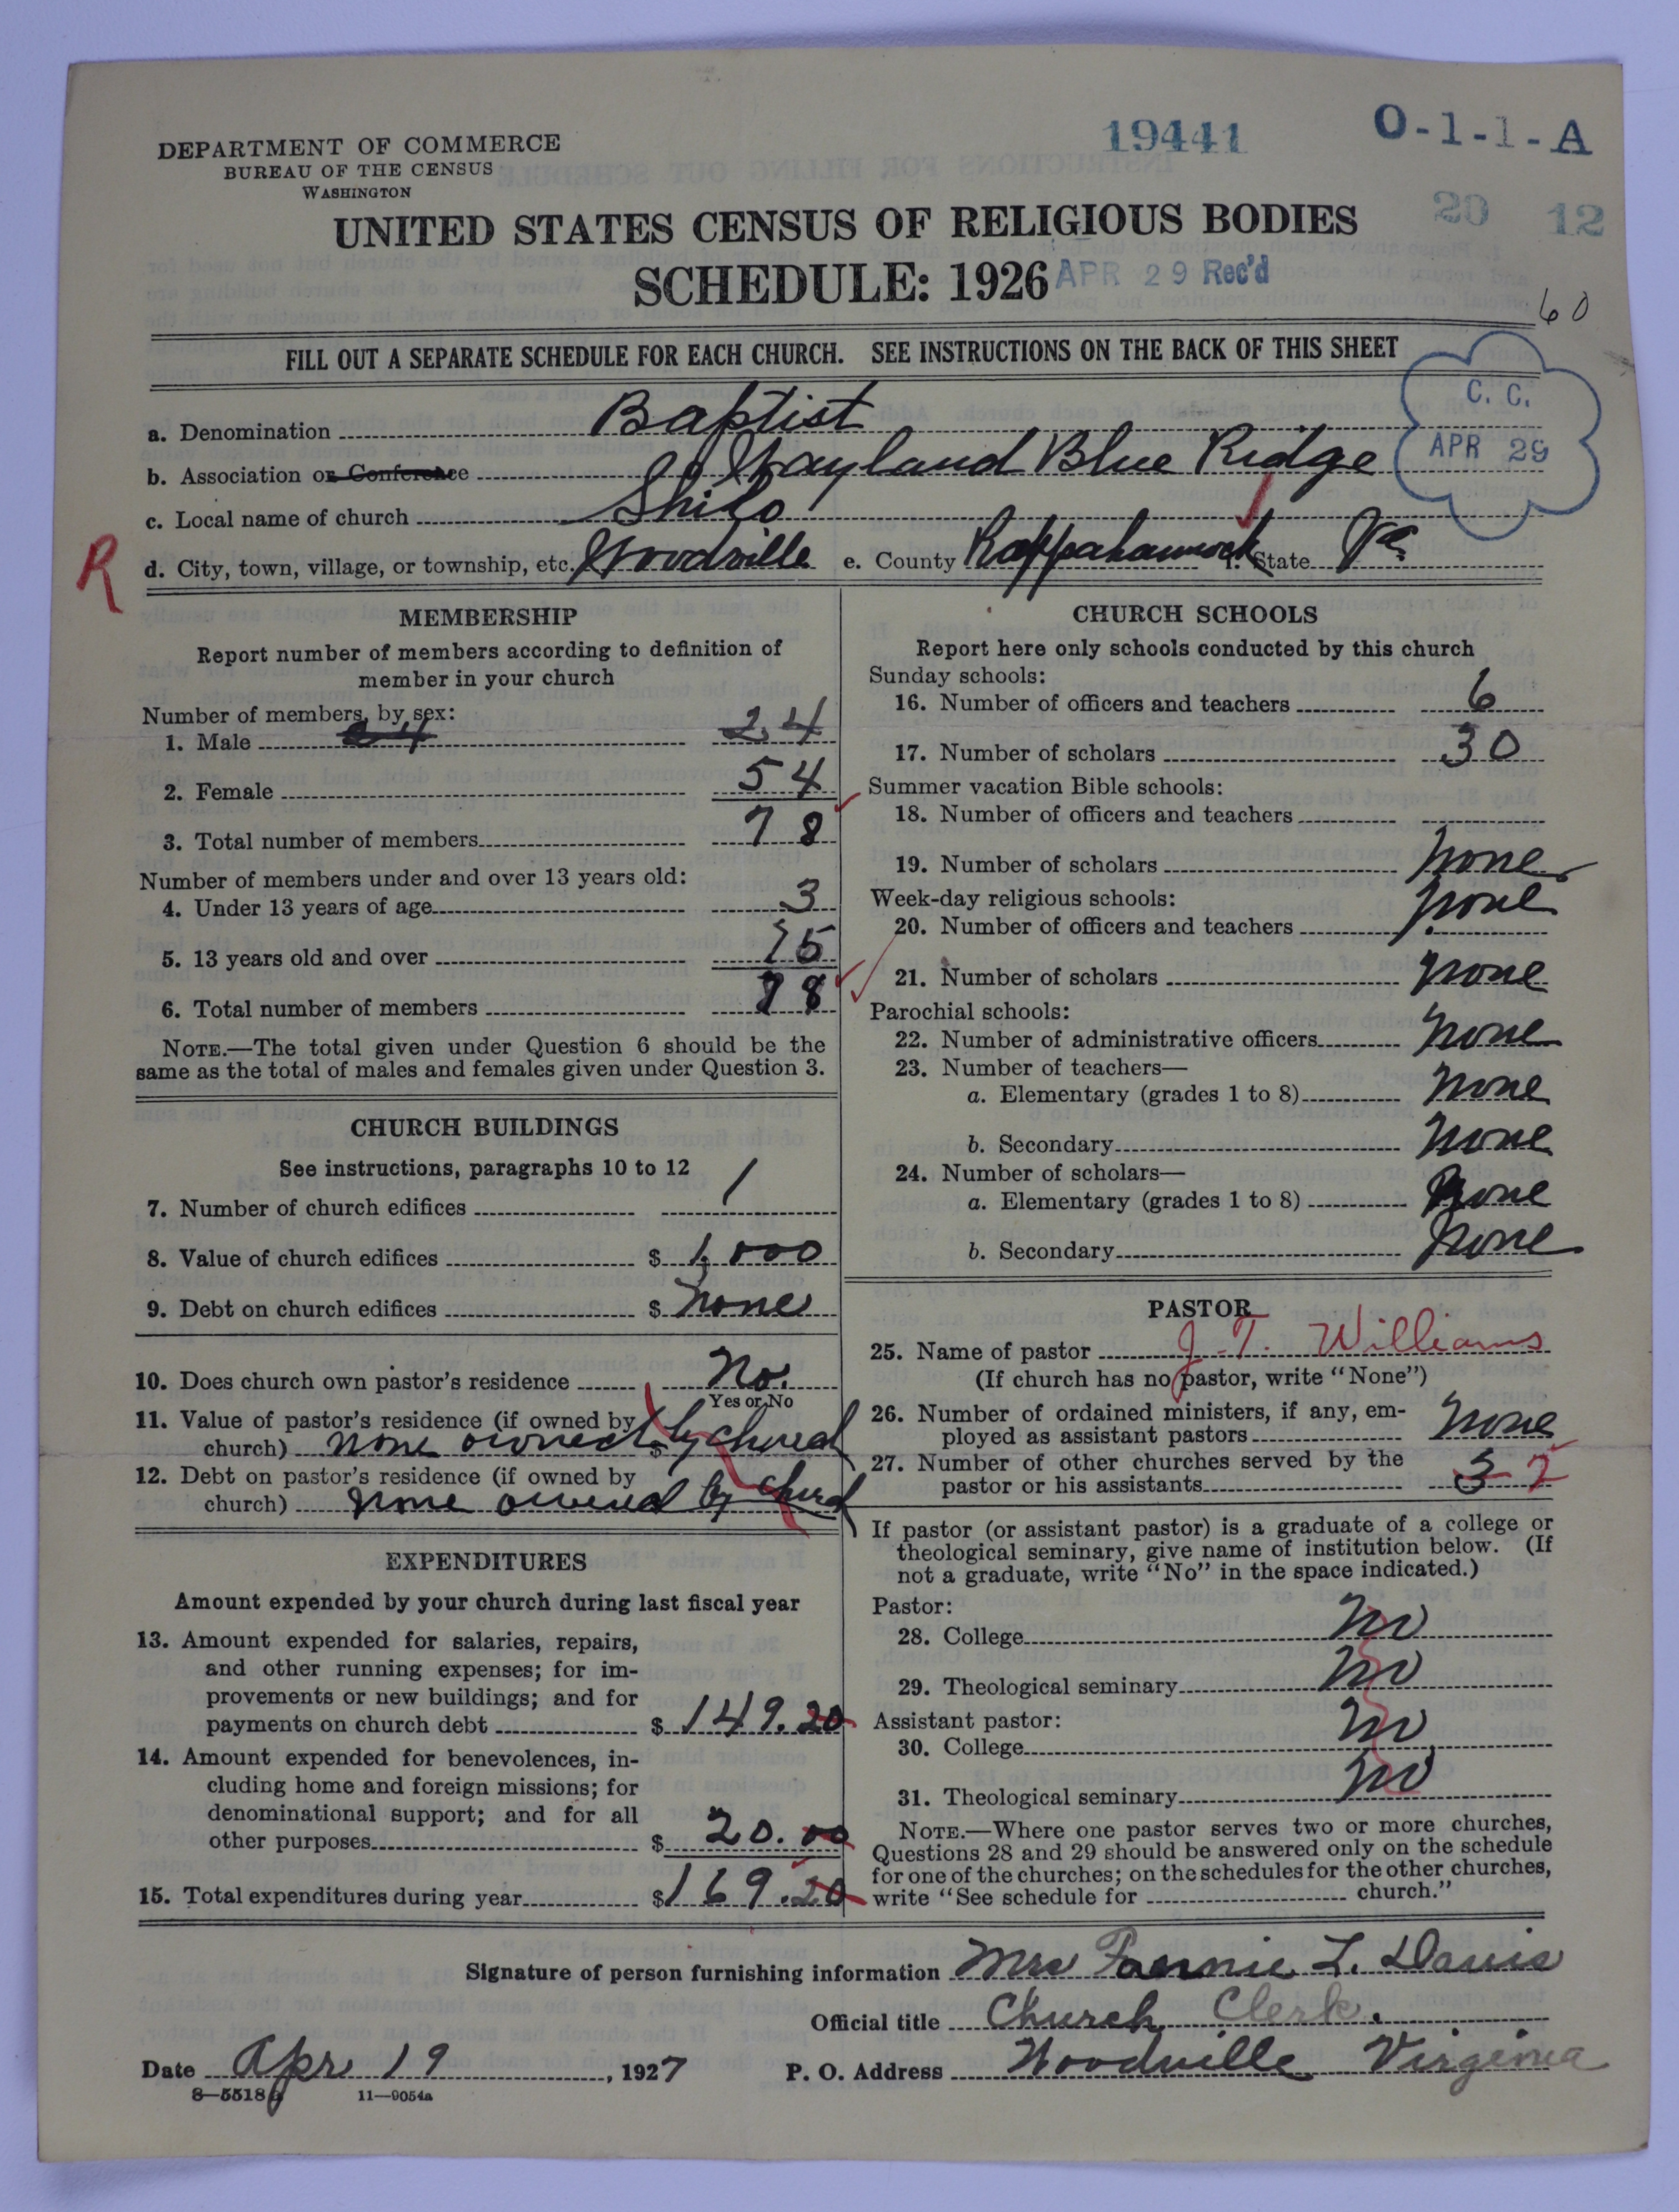 19441 O-1-1-A
DEPARTMENT OF COMMERCE
BUREAU OF THE CENSUS
WASHINGTON
20 12
UNITED STATES CENSUS OF RELIGIOUS BODIES
SCHEDULE: 1926 APR 29 Rec'd
60
FILL OUT A SEPARATE SCHEDULE FOR EACH CHURCH. SEE INSTRUCTIONS ON THE BACK OF THIS SHEET
C. C.
APR 29
a. Denomination Baptist
b. Association or Conference Wayland Blue Ridge
c. Local name of church Shilo
R
d. City, town, village, or township, etc. Woodville e. County Rappahannock f. State Va.
MEMBERSHIP
Report number of members according to definition of
member in your church
Number of members, by sex:
1. Male 24
2. Female 54
3. Total number of members 78
Number of members under and over 13 years old:
4. Under 13 years of age 3
5. 13 years old and over 75
6. Total number of members 78
NOTE.—The total given under Question 6 should be the
same as the total of males and females given under Question 3.
CHURCH BUILDINGS
See instructions, paragraphs 10 to 12
7. Number of church edifices 1
8. Value of church edifices $ 1,000
9. Debt on church edifices $ none
10. Does church own pastor's residence No.
Yes or No
11. Value of pastor's residence (if owned by
church) none owned $ by church
12. Debt on pastor's residence (if owned by
church) none owned by church
EXPENDITURES
Amount expended by your church during last fiscal year
13. Amount expended for salaries, repairs,
and other running expenses; for im-
provements or new buildings; and for
payments on church debt $ 149.20
14. Amount expended for benevolences, in-
cluding home and foreign missions; for
denominational support; and for all
other purposes $ 20.00
15. Total expenditures during year $ 169.20
CHURCH SCHOOLS
Report here only schools conducted by this church
Sunday schools:
16. Number of officers and teachers 6
17. Number of scholars 30
Summer vacation Bible schools:
18. Number of officers and teachers
19. Number of scholars none
Week-day religious schools:
20. Number of officers and teachers none
21. Number of scholars none
Parochial schools:
22. Number of administrative officers none
23. Number of teachers—
a. Elementary (grades 1 to 8) none
b. Secondary none
24. Number of scholars—
a. Elementary (grades 1 to 8) none
b. Secondary none
PASTOR
25. Name of pastor J. T. Williams
(If church has no pastor, write "None")
26. Number of ordained ministers, if any, em-
ployed as assistant pastors none
27. Number of other churches served by the
pastor or his assistants 3 2
If pastor (or assistant pastor) is a graduate of a college or
theological seminary, give name of institution below. (If
not a graduate, write "No" in the space indicated.)
Pastor:
28. College no
29. Theological seminary no
Assistant pastor:
30. College no
31. Theological seminary no
NOTE.—Where one pastor serves two or more churches,
Questions 28 and 29 should be answered only on the schedule
for one of the churches; on the schedules for the other churches,
write "See schedule for church."
Signature of person furnishing information Mrs Fannie L. Davis
Official title Church Clerk.
Date Apr 19, 1927 P. O. Address Woodville Virginia
8—5518 11—9054a